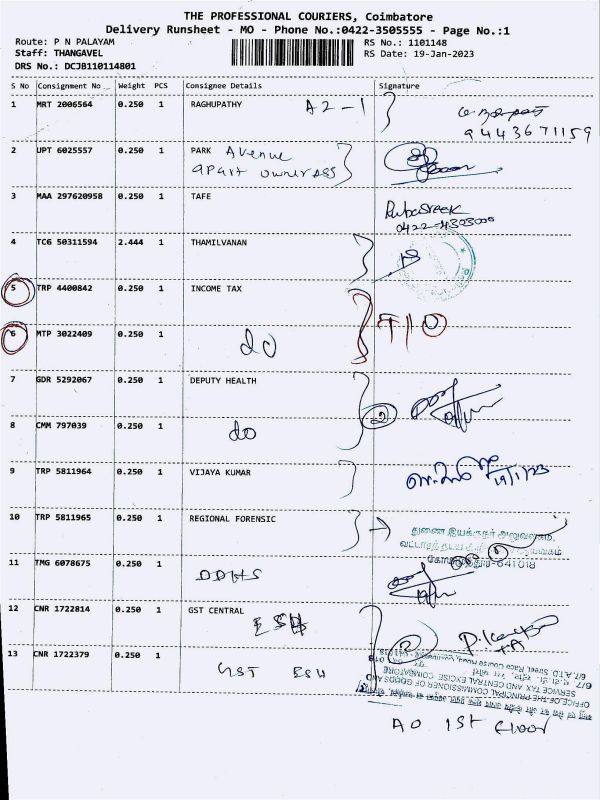 THE PROFESSIONAL COURIERS, Coimbatore
Delivery Runsheet - MO - Phone No.:0422-3505555 - Page No.:1
Route: P N PALAYAM
Staff: THANGAVEL
DRS No.: DCJB110114801
RS No.: 1101148
RS Date: 19-Jan-2023
S No Consignment No Weight PCS Consignee Details Signature
1 MRT 2006564 0.250 1 RAGHUPATHY A2-1
9443671159
2 UPT 6025557 0.250 1 PARK Avenue
apart owner ass
3 MAA 297620958 0.250 1 TAFE
0422-4303000
4 TCG 50311594 2.444 1 THAMILVANAN
5 TRP 4400842 0.250 1 INCOME TAX
6 MTP 3022409 0.250 1 do
7 GDR 5292067 0.250 1 DEPUTY HEALTH
2
8 CMM 797039 0.250 1 do
9 TRP 5811964 0.250 1 VIJAYA KUMAR
19/1/23
10 TRP 5811965 0.250 1 REGIONAL FORENSIC
துணை இயக்குநர் அலுவலகம்,
641018
11 TMG 6078675 0.250 1 DDHS
12 CNR 1722814 0.250 1 GST CENTRAL
2
13 CNR 1722379 0.250 1 GST ESH
6/7 A.T.D. Street, Race Course Road,
SERVICE TAX AND CENTRAL EXCISE COIMBATORE
OFFICE OF THE PRINCIPAL COMMISSIONER OF GOODS AND
AO 1st floor